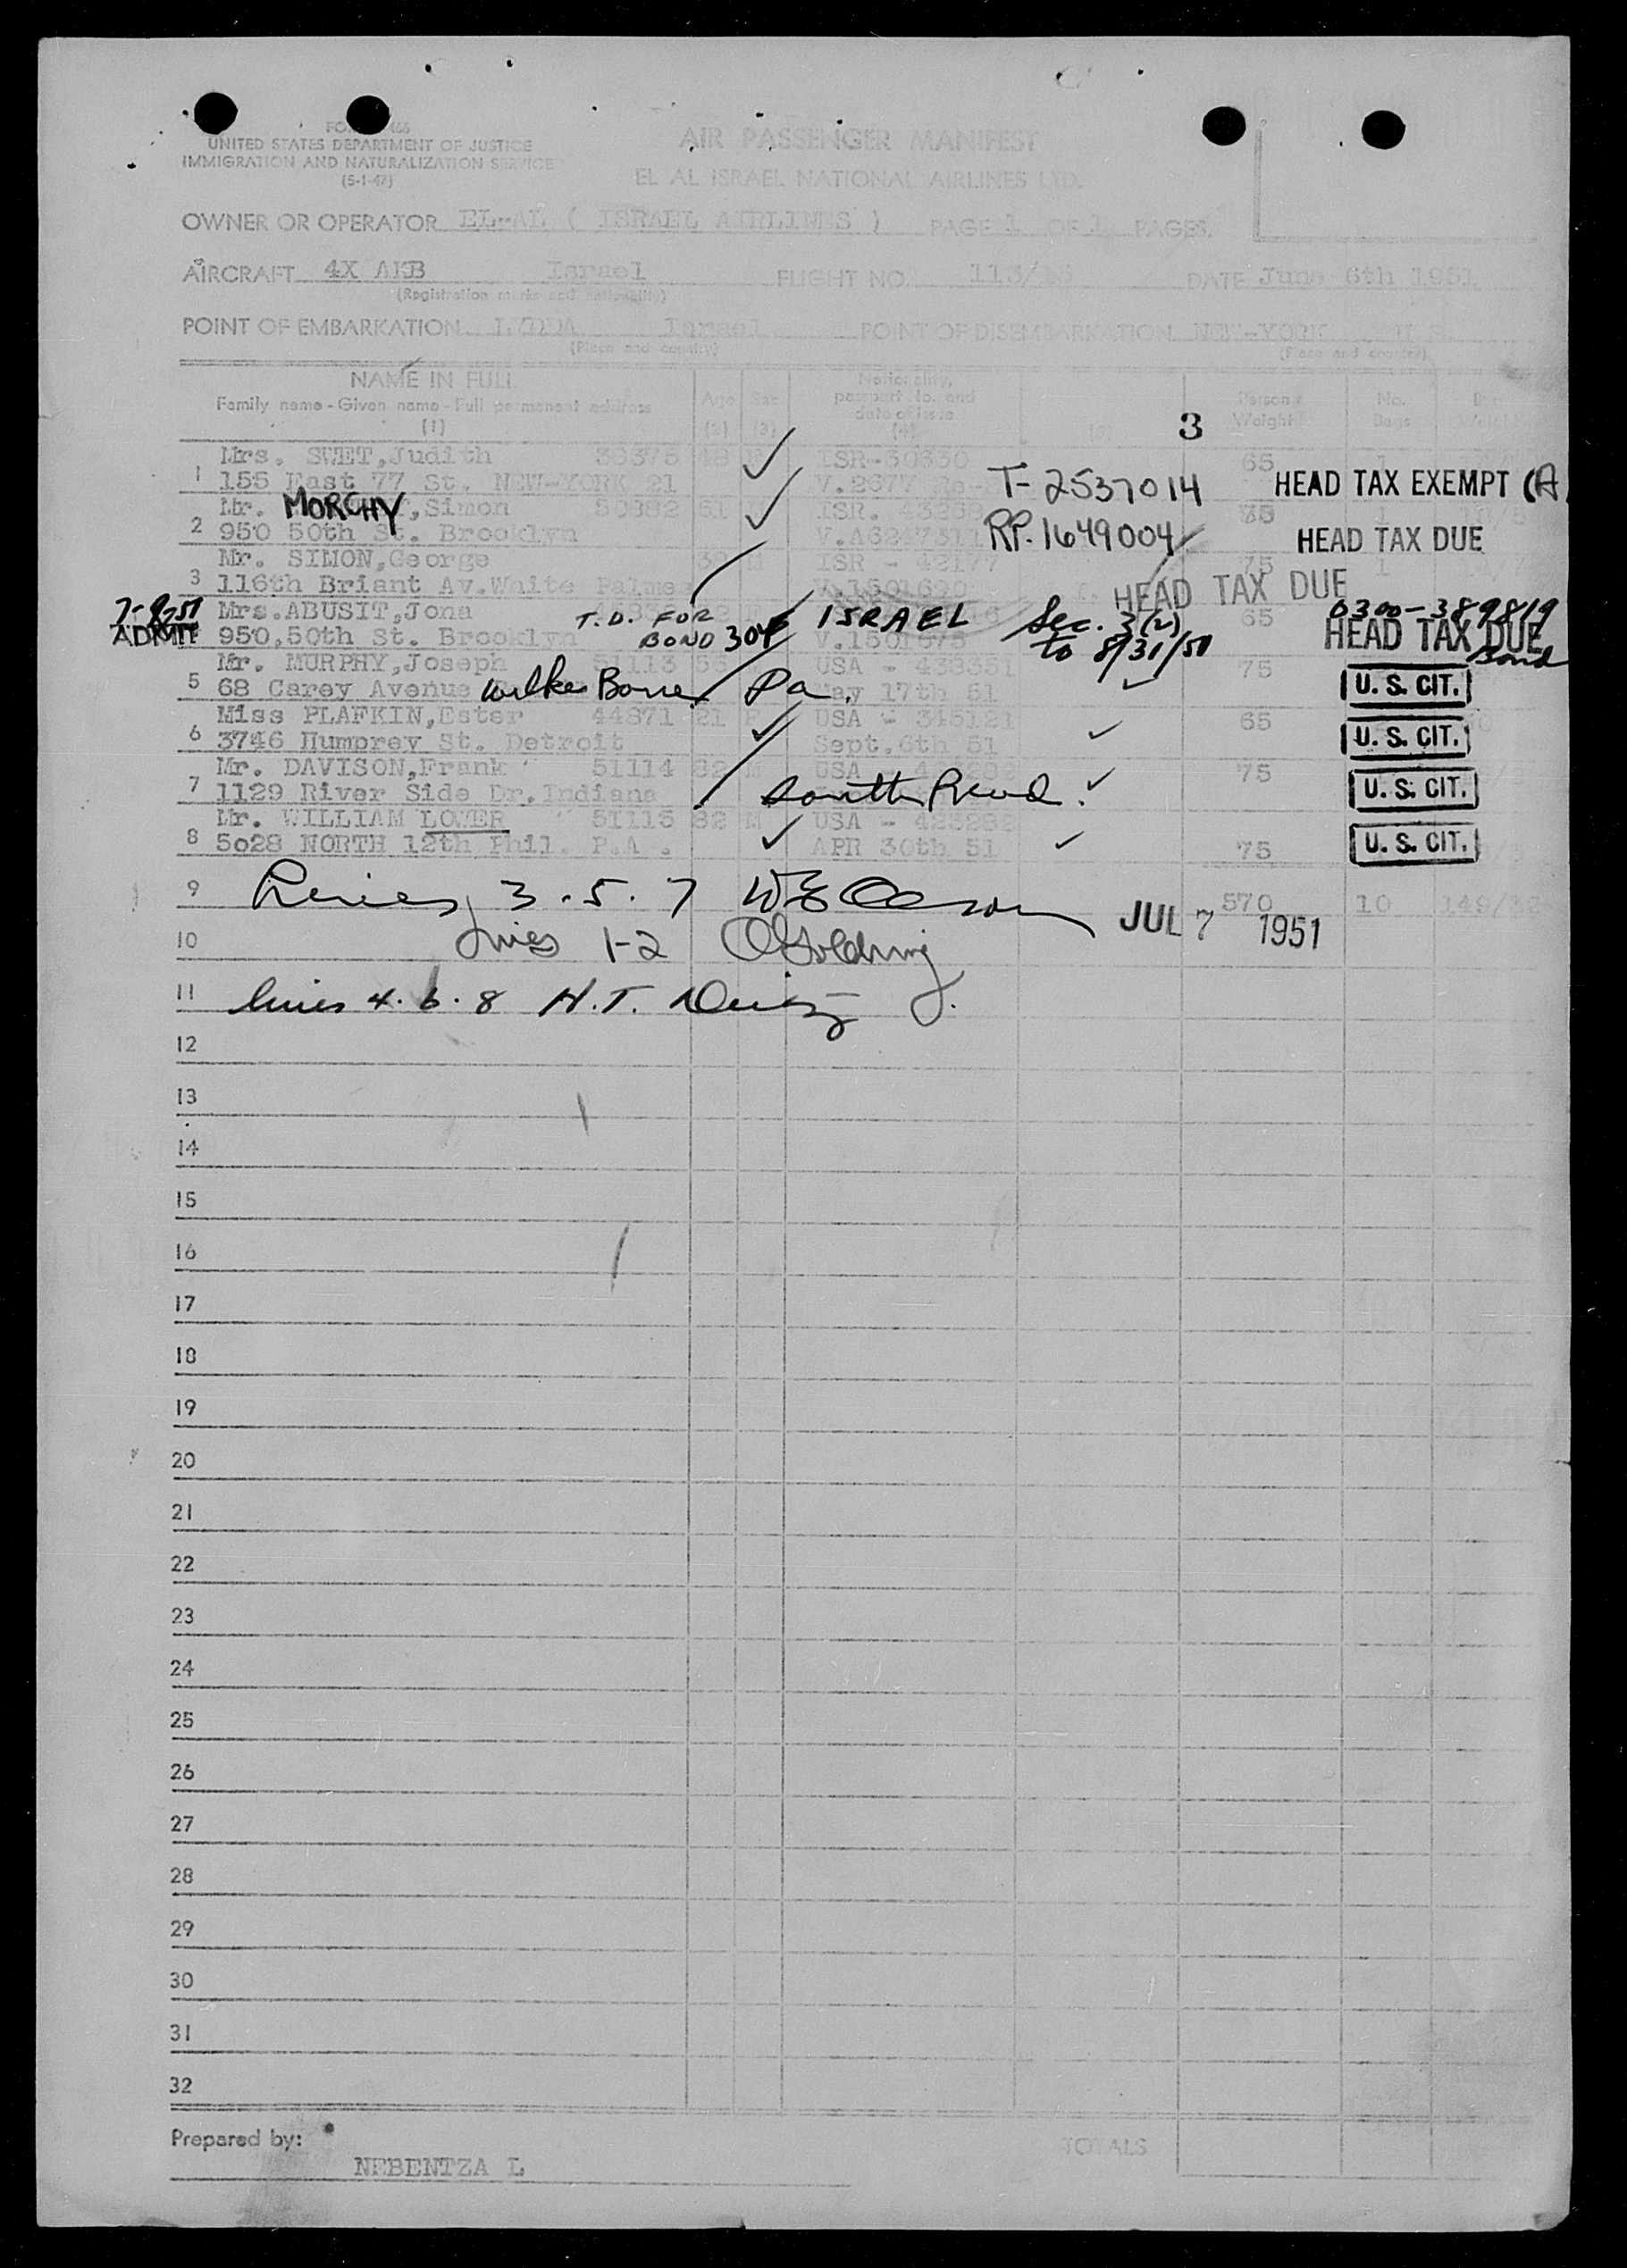 UNITED STATES DEPARTMENT OF JUSTICE
IMMIGRATION AND NATURALIZATION SERVICE
(5-1-47)
AIR PASSENGER MANIFEST
EL AL ISRAEL NATIONAL AIRLINES LTD.
OWNER OR OPERATOR EL-AL ( ISRAEL AIRLINES ) PAGE 1 OF 1 PAGES.
AIRCRAFT 4X AKB Israel FLIGHT NO. DATE June 6th 1951
(Registration marks and nationality)
POINT OF EMBARKATION LYDDA Israel POINT OF DISEMBARKATION NEW-YORK
(Place and country) (Place and country)
NAME IN FULL
Family name - Given name - Full permanent address Age Sex Nationality, passport No. and date of issue Person's Weight No. Bags
(1) (2) (3) (4) (5) 3
Mrs. SWET, Judith ISR-30330 65
1 155 East 77 St. NEW-YORK 21 T-2537014 HEAD TAX EXEMPT (A
Mr. MORCHY, Simon 51 ISR.
2 950 50th St. Brooklyn RP.1649004 HEAD TAX DUE
Mr. SIMON, George ISR - 42177 75 1
3 116th Briant Av. White Palms HEAD TAX DUE
7-8-51 Mrs. ABUSIT, Jona T.D. FOR ISRAEL Sec. 3(2) 0300-389819
ADMIT 950,50th St. Brooklyn BOND 304 V.1501675 to 8/31/51 65 HEAD TAX DUE
Bond
Mr. MURPHY, Joseph 51113 USA - 438351 75
5 68 Carey Avenue Wilke Barre Pa. May 17th 51 U. S. CIT.
Miss PLAFKIN, Ester 44871 21 F USA - 345121 65
6 3746 Humprey St. Detroit Sept. 6th 51 U. S. CIT.
Mr. DAVISON, Frank 51114 32 M USA 75
7 1129 River Side Dr. Indiana South Bend. U. S. CIT.
Mr. WILLIAM LOWER 51115 32 M USA - 423282
8 5028 NORTH 12th Phil. P.A. APR 30th 51 75 U. S. CIT.
9 Lines 3.5.7 JUL 7 1951 570 10
10 Lines 1-2
11 lines 4.6.8 H.T.
12
13
14
15
16
17
18
19
20
21
22
23
24
25
26
27
28
29
30
31
32
Prepared by: TOTALS
NEBENTZA L